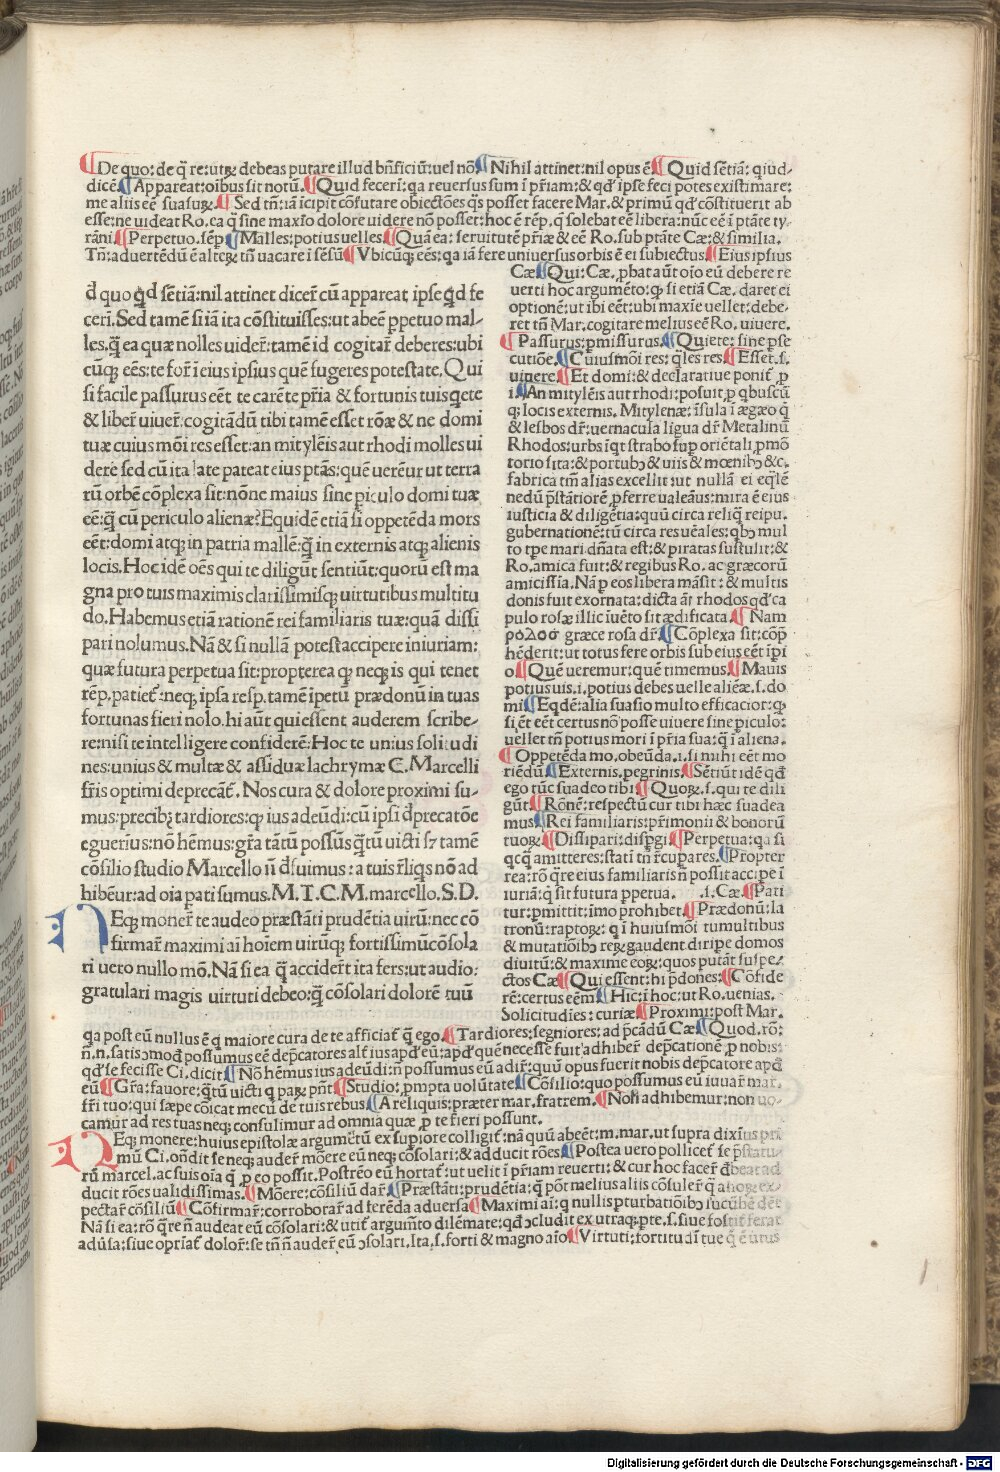 De quo: de q̄ re: utrꝝ debeas putare illud bn̄ficiū: uel nō. Nihil attinet: nil opus ē Quid sētiā: q iudicē. Appareat: oībus sit notū. Quid fecerī: qa reuersus sum ī pr̄iam: & qđ ipse feci potes existimare:
me aliis eē suasurꝝ. Sed tn̄: iā icipit cōfutare obiectōes q̄s posset facere Mar. & primū qđ cōstituerit ab
esse: ne uideat Ro. ea q̄ sine maxīo dolore uidere nō posset: hoc ē rēp. q̄ solebat eē libera: nūc eē ī ptāte ty-
rāni. Perpetuo. sēp Malles: potius uelles. Quā ea: seruitutē pr̄iæ & eē Ro. sub ptāte Cæ: & similia.
Tn̄: aduertēdū ē alterꝝ tn̄ uacare ī sēsū Vbicūqꝫ eēs: qa iā fere uniuersus orbis ē ei subiectus Eius ipsius
đ quo q̄d sētiā: nil attinet dicer̄ cū appareat ipse q̄d fe
ceri. Sed tamē si iā ita cōstituisses: ut abeē ꝑpetuo mal-
les. q̄ ea quæ nolles uider̄: tamē id cogitar̄ deberes: ubi
cūqꝫ eēs: te for̄ ī eius ipsius quē fugeres potestate. Qui
si facile passurus eēt te carēte pr̄ia & fortunis tuis q̄ete
& liber̄ uiuer̄: cogitādū tibi tamē esset rōæ & ne domi
tuæ cuius mōi res esset: an mitylēis aut rhodi molles ui
dere sed cū ita late pateat eius ptās: quē uerēur ut terra
rū orbē cōplexa sit: nōne maius sine piculo domi tuæ
eē: q̄ cū periculo alienæ? Equidē etiā si oppetēda mors
eēt: domi atqꝫ in patria mallē: q̄ in externis atqꝫ alienis
locis. Hoc idē oēs qui te diligūt sentiūt: quorū est ma
gna pro tuis maximis clarissimisqꝫ uirtutibus multitu
do. Habemus etiā rationē rei familiaris tuæ: quā dissi
pari nolumus. Nā & si nullā potest accipere iniuriam:
quæ futura perpetua sit: propterea qꝫ neqꝫ is qui tenet
rēp. patiet̄: neqꝫ ipsa resp. tamē īpetū prædonū in tuas
fortunas fieri nolo. hi aūt qui essent auderem scribe-
re: nisi te intelligere confiderē: Hoc te unius solicitudi
nes: unius & multæ & assiduæ lachrymæ C. Marcelli
fr̄is optimi deprecāt̄. Nos cura & dolore proximi su-
mus: precibꝫ tardiores: qꝫ ius adeūdi: cū ipsi đprecatōe
eguerius: nō hēmus: gr̄a tātū possūs q̄tū uicti sꝫ tamē
cōsilio studio Marcello n̄ đsuimus: a tuis r̄liqs nō ad
hibēur: ad oīa pati sumus. M. T. C. M. marcello. S. D.
NEqꝫ moner̄ te audeo præstāti prudētia uirū: nec cō
firmar̄ maximi ai hoīem uirūqꝫ fortissimū cōsola
ri uero nullo mō. Nā si ea q̄ acciderr̄t ita fers: ut audio:
gratulari magis uirtuti debeo: q̄ cōsolari dolorē tuū
Cæ. Qui: Cæ. ꝓbat aūt oīo eū debere re
uerti hoc argumēto: qꝫ si etiā Cæ. daret ei
optionē: ut ibi eēt: ubi maxīe uellet: debe-
ret tn̄ Mar. cogitare melius eē Ro. uiuere.
Passurus: pmissurus. Quiete: sine pse
cutiōe. Cuiusmōi res: q̄les res. Esset. s.
uiuere. Et domi: & declaratiue ponit̄ ꝓ
i. An mitylēis aut rhodi: posuit ꝓ qbuscū
qꝫ locis externis. Mitylenæ: īsula ī ægæo q̄
& lesbos dr̄: uernacula līgua dr̄ Metalinū
Rhodos: urbs īqt strabo sup oriētali ꝓmō
torio sita: & portubꝫ & uiis & mœnibꝫ & c.
fabrica tm̄ alias excellit: ut nullā ei eq̄lē
nedū p̄stātiorē ꝓferre ualeāus: mira ē eius
iusticia & diligētia: quū circa reliq̄ reipu.
gubernationē: tū circa res uēales: qbꝫ mul
to tpe mari dn̄ata est: & piratas sustulit: &
Ro. amica fuit: & regibus Ro. ac græcorū
amicissīa. Nā ꝓ eos libera māsit: & multis
donis fuit exor̄nata: dicta āt rhodos qđ ca
pulo rosæ illic iuēto sit ædificata. Nam
ροδοσ græce rosa dr̄. Cōplexa sit: cōp
hēderit: ut totus fere orbis sub eius eēt īpi
o. Quē ueremur: quē timemus. Mauis
potius uis. i. potius debes uelle aliēæ. s. do
mi. Eqdē: alia suasio multo efficacior: qꝫ
si ēt eēt certus nō posse uiuere sine piculo:
uellet tn̄ potius mori ī pr̄ia sua: q̄ ī aliena.
Oppetēda mo. obeūda. i. si mihi eēt mo
riēdū. Externis. pegrinis. Sētiūt idē qđ
ego tūc suadeo tibi. Quorꝝ. s. qui te dili
gūt. Rōnē: respectū cur tibi hæc suadea
mus. Rei familiaris: pr̄imonii & bonorū
tuorꝝ. Dissipari: dispgi. Perpetua: qa si
qcq̄ amitteres: statī tn̄ r̄cupares. Propter
rea: rō q̄re eius familiaris n̄ possit accipe ī
iuriā: q̄ sit futura ꝑpetua. .s. Cæ. Pati
tur: pmittit: īmo prohibet. Prædonū: la
tronū: raptorꝝ: q ī huiusmōi tumultibus
& mutatiōibꝫ rerꝝ gaudent diripe domos
diuitū: & maxime eorꝝ: quos putāt suspe-
ctos Cæ. Qui essent: hi p̄dones: Cōfide
rē: certus eēm. Hic: ī hoc: ut Ro. uenias.
Solicitudīes: curiæ. Proximi: post Mar.
qa post eū nullus ē q maiore cura de te afficiat̄ q̄ ego. Tardiores: segniores: ad p̄cādū Cæ. Quod. rō:
n̄. n. satis ɔmođ possumus eē dep̄catores alt̄ ius apđ eū: apđ quē necesse fuit adhiber̄ dep̄cationē ꝓ nobis:
qđ se fecisse Ci. dicit. Nō hēmus ius adeūdi: n̄ possumus eū adir̄: quū opus fuerit nobis dep̄catore apđ
eū. Gr̄a: fauore: q̄tū uicti q parꝝ pn̄t. Studio: ꝓmpta uolūtate. Cōsilio: quo possumus eū iuuar̄ mar.
fr̄i tuo: qui sæpe cōicat mecū de tuis rebus. A reliquis: præter mar. fratrem. Non adhibemur: non uo-
camur ad res tuas neqꝫ consulimur ad omnia quæ ꝓ te fieri possunt.
NEqꝫ monere: huius epistolæ argumētū ex supiore colligit̄: nā quū abeēt: m. mar. ut supra dixīus pri
mū Ci. oñdit se neqꝫ auder̄ mōere eū neqꝫ cōsolari: & adducit rōes. Postea uero pollicet̄ se p̄statu-
rū marcel. ac suis oīa q̄ ꝓ eo possit. Postrēo eū hortat̄: ut uelit ī pr̄iam reuerti: & cur hoc facer̄ đbeat ad
ducit rōes ualidissimas. Mōere: cōsiliū dar̄. Præstāti: prudētia: q̄ pōt melius aliis cōsuler̄ q̄ ab aliis ex-
pectar̄ cōsiliū. Cōfirmar̄: corroborar̄ ad ferēda aduersa. Maximi ai: q nullis pturbatiōibꝫ sucūbē det
Nā si ea: rō q̄re n̄ audeat eū cōsolari: & utit̄ argumēto dilēmate: qđ ɔcludit ex utraqꝫ pte. s. siue fortit̄ ferat
adūsa: siue opriāt̄ dolor̄: se tn̄ n̄ auder̄ eū ɔsolari. Ita. s. forti & magno aīo. Virtuti: fortitudī tue q̄ ē uirtus
Digitalisierung gefördert durch die Deutsche Forschungsgemeinschaft - DFG